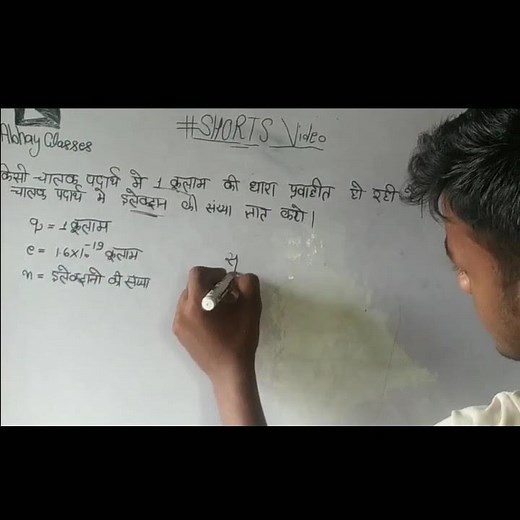 #SHORTS Video
Abhay Classes
किसी चालक पदार्थ में 1 कूलाम की धारा प्रवाहीत हो रही है
चालक पदार्थ में इलेक्ट्रान की संख्या ज्ञात करो।
q = 1 कूलाम
e = 1.6×10⁻¹⁹ कूलाम
n = इलेक्ट्रानो की संख्या